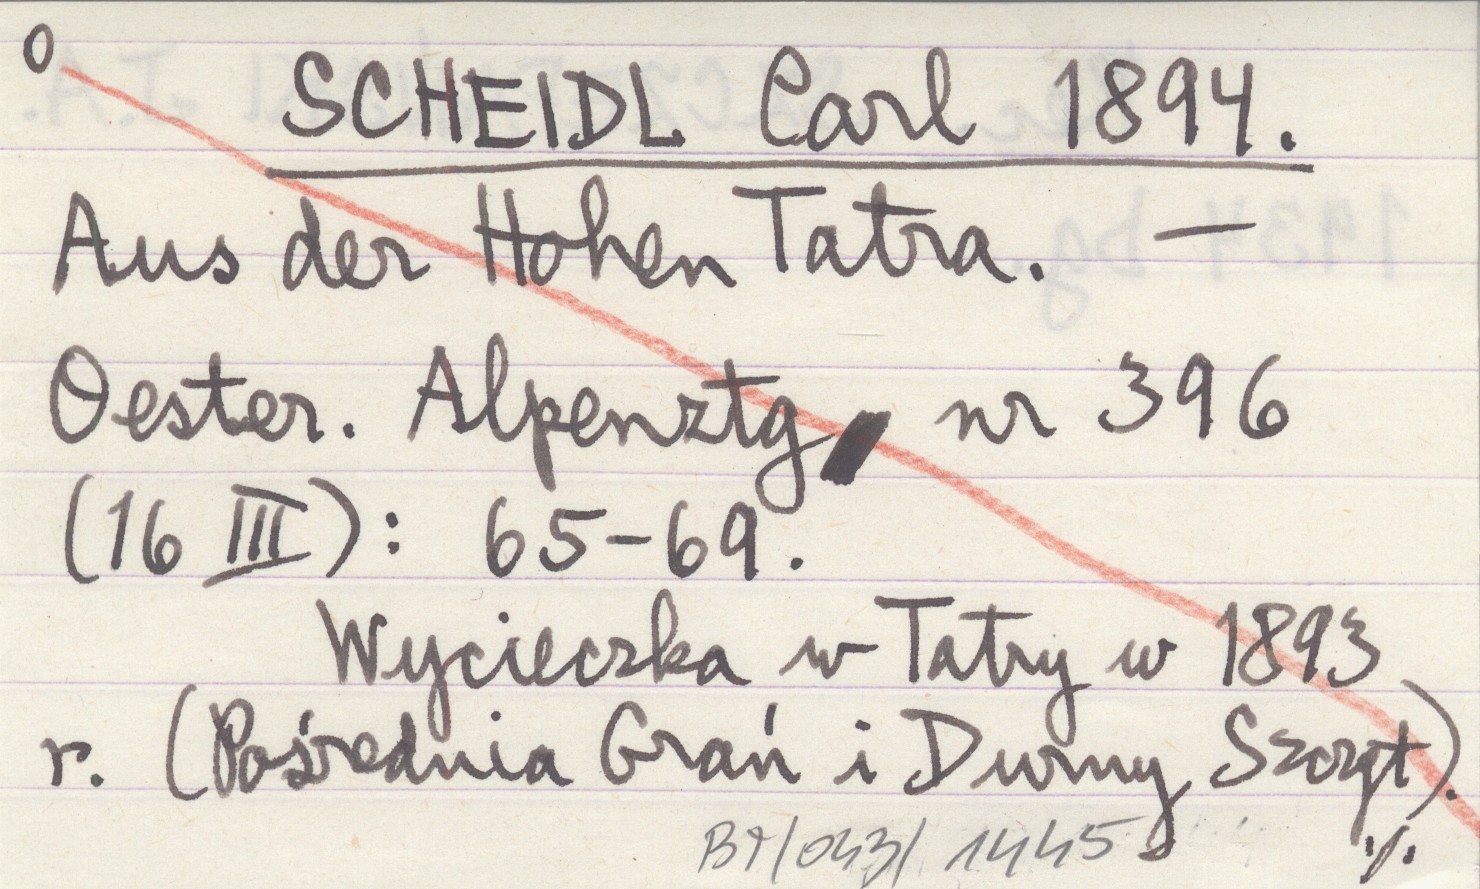 0
SCHEIDL Carl 1894.
Aus der Hohen Tatra. —
Oester. Alpenztg nr 396
(16 III): 65-69.
Wycieczka w Tatry w 1893
r. (Pośrednia Grań i Durny Szczyt).
BT/043/1445 ./.